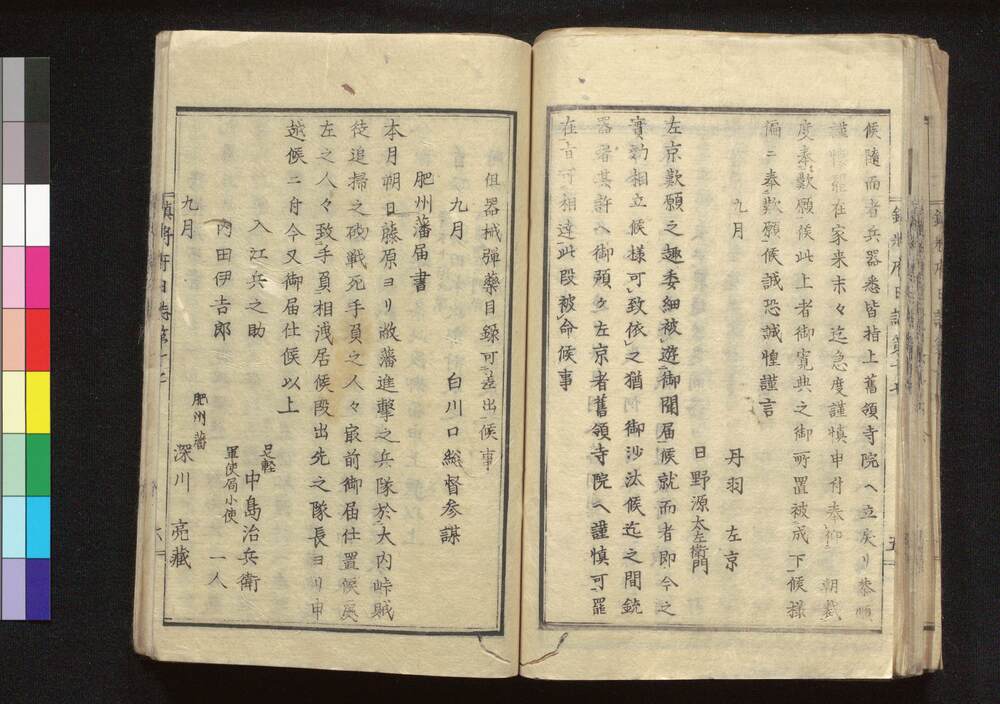 候隨而者兵器悉皆指上舊領寺院ヘ立戻リ恭順
謹愼罷在家来末々迄急度謹愼申付奉仰　朝裁
度奉歎願候此上者御寛典之御所置被成下候様
偏ニ奉歎願候誠恐誠惶謹言
九月
丹羽　左京
日野源太左衛門
左京歎願之趣委細被遊御聞届候就而者即今之
實効相立候様可致依之猶何御沙汰候迄之間銃
器者其許ヘ御預ケ左京者舊領寺院ヘ謹愼可罷
在旨可相達此段被命候事
但器械彈藥目録可差出候事
九月　白川口總督參謀
肥州藩届書
本月朔日藤原ヨリ敝藩進擊之兵隊於大内峠賊
徒追掃之砌戰死手負之人々最前御届仕置候處
左之人々致手負相洩居候段出先之隊長ヨリ申
越候ニ付今又御届仕候以上
足輕
入江兵之助　中島治兵衛
軍使局小使
内田伊吉郎　一人
九月
肥州藩
深川　亮藏
鎮將府日誌第十七
五
六